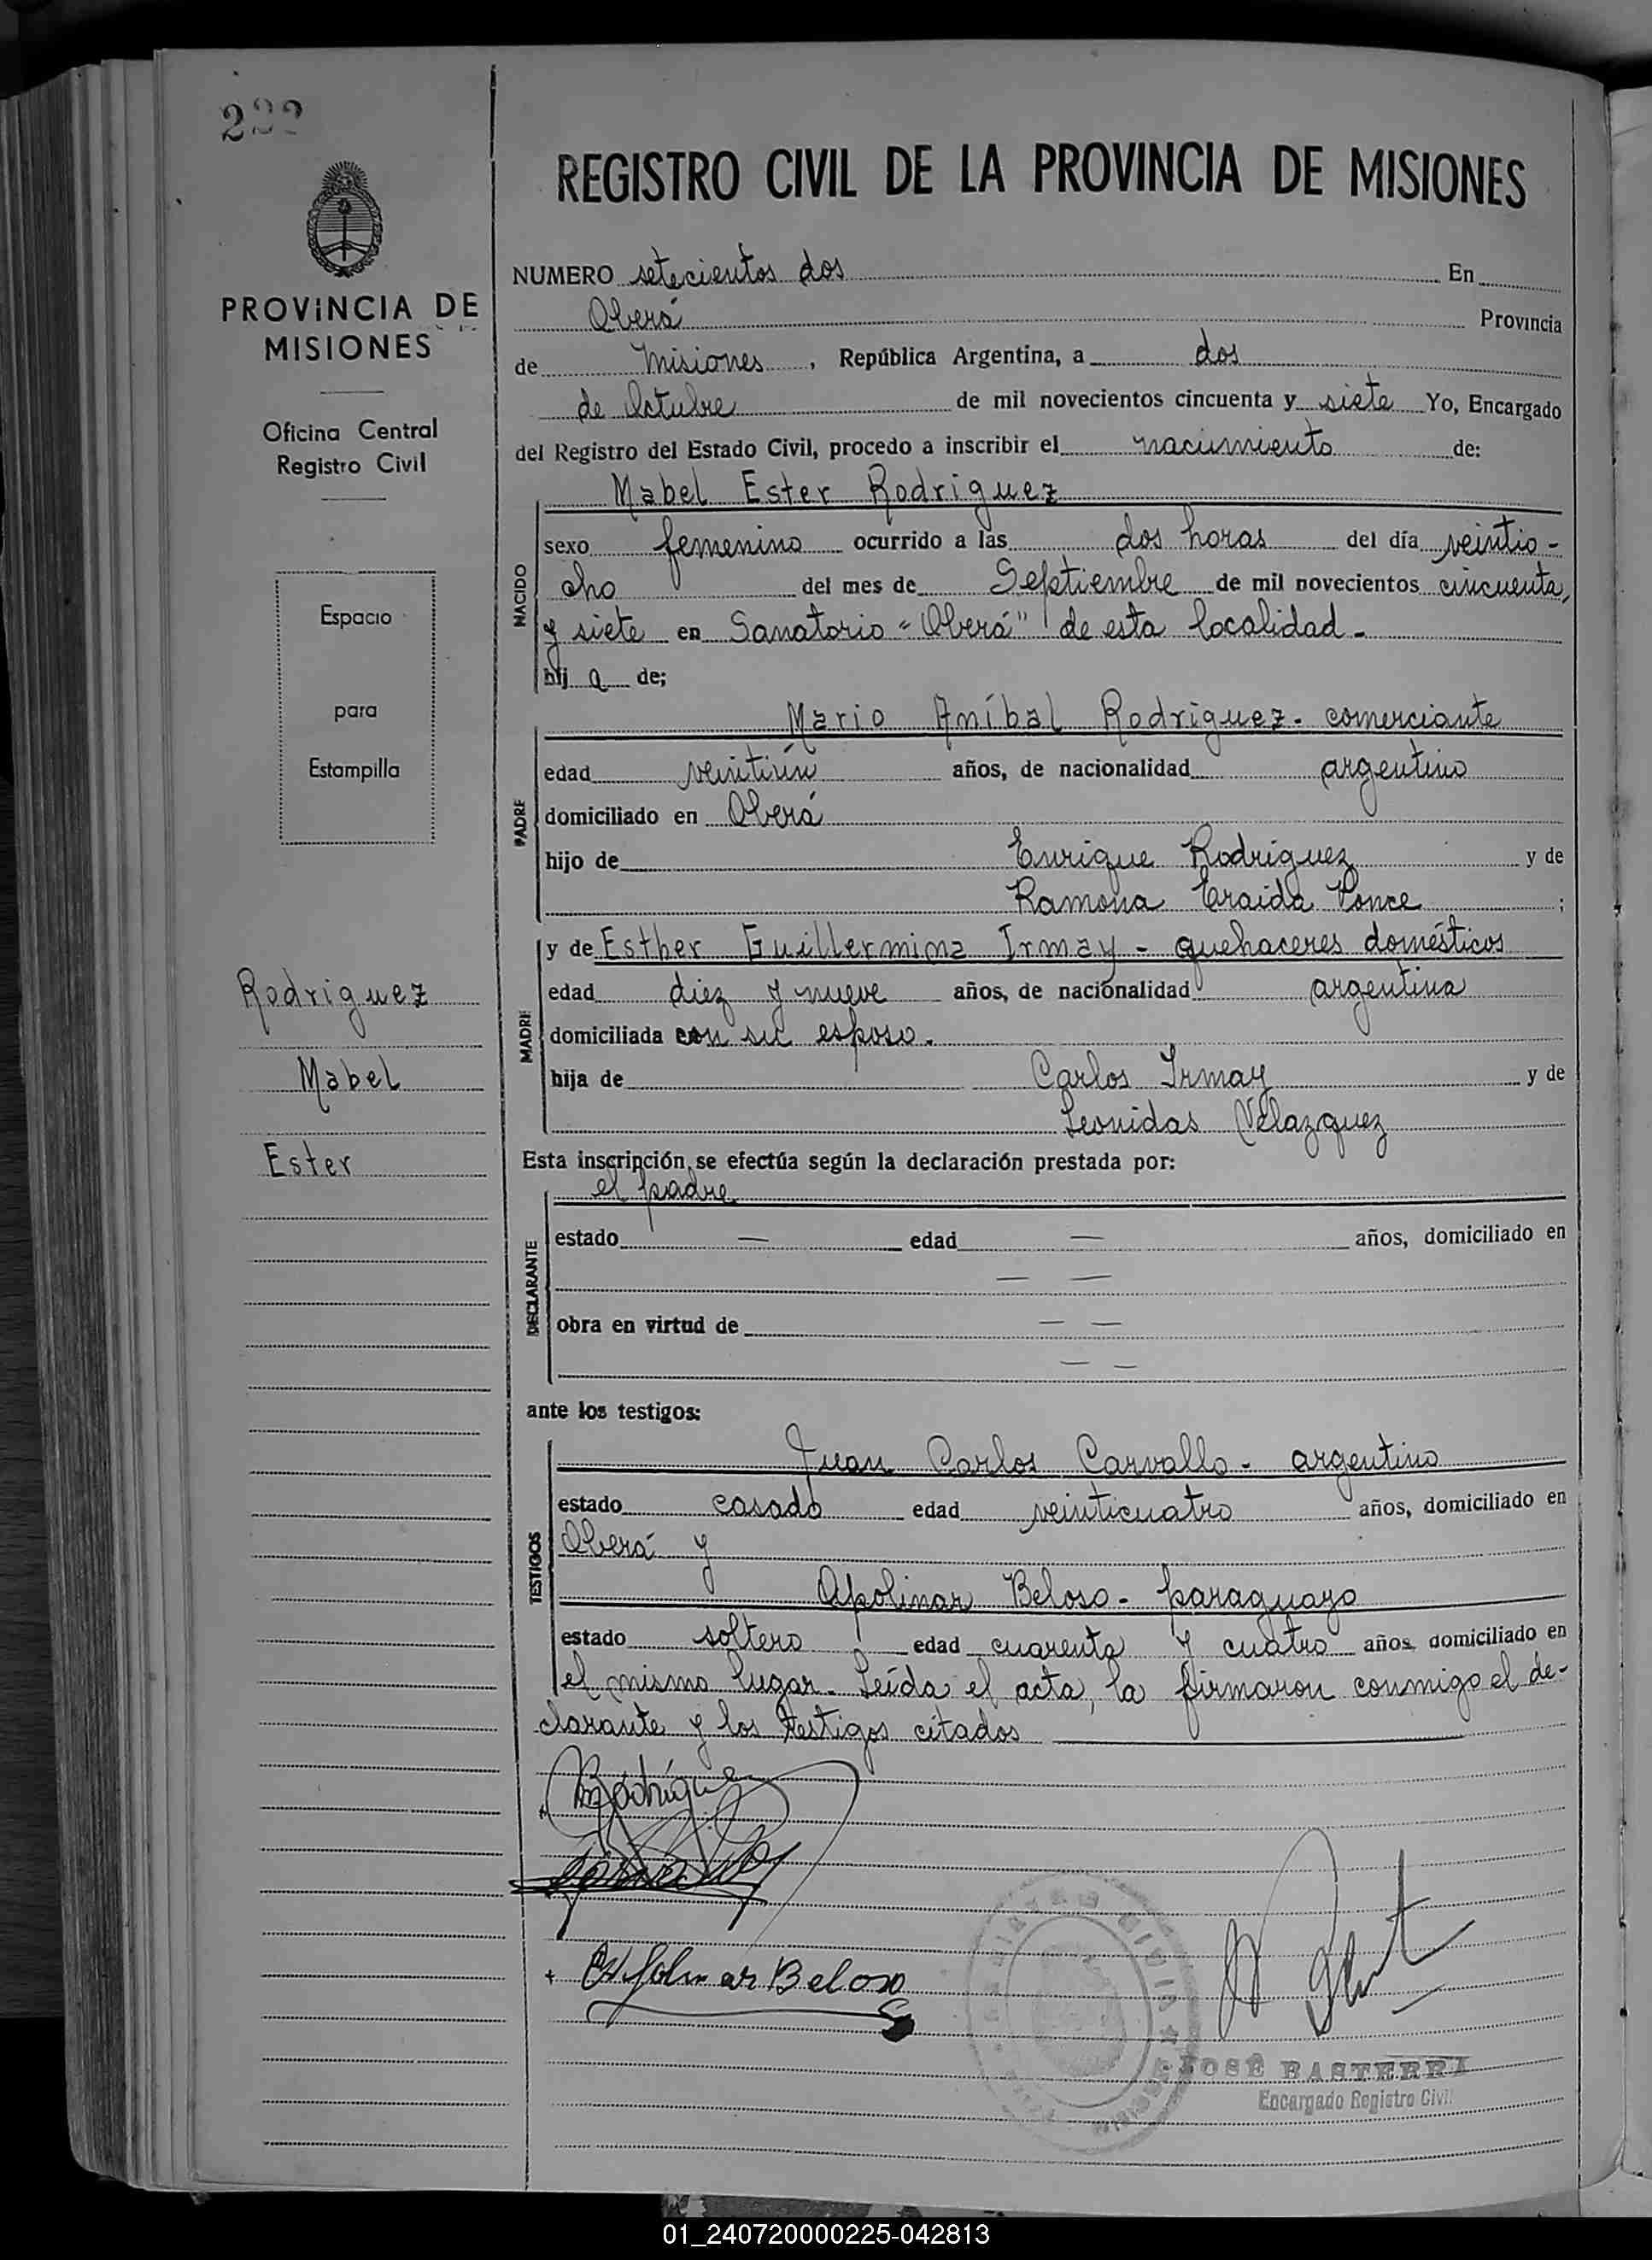 222
REGISTRO CIVIL DE LA PROVINCIA DE MISIONES
PROVINCIA DE
MISIONES
Oficina Central
Registro Civil
Espacio
para
Estampilla
Rodriguez
Mabel
Ester
NUMERO setecientos dos En
Oberá Provincia
de Misiones, República Argentina, a dos
de Octubre de mil novecientos cincuenta y siete Yo, Encargado
del Registro del Estado Civil, procedo a inscribir el nacimiento de:
Mabel Ester Rodriguez
NACIDO
sexo femenino ocurrido a las dos horas del día veintio-
cho del mes de Septiembre de mil novecientos cincuenta
y siete en Sanatorio "Oberá" de esta localidad.
hij a de;
Mario Aníbal Rodriguez - comerciante
PADRE
edad veintiún años, de nacionalidad argentino
domiciliado en Oberá
hijo de Enrique Rodriguez y de
Ramona Eraida Ponce ;
MADRE
y de Esther Guillermina Irmay - quehaceres domésticos
edad diez y nueve años, de nacionalidad argentina
domiciliada con su esposo.
hija de Carlos Irmay y de
Leonidas Velazquez
Esta inscripción se efectúa según la declaración prestada por:
el padre
DECLARANTE
estado — edad — años, domiciliado en
— —
obra en virtud de — —
— —
ante los testigos:
TESTIGOS
Juan Carlos Carvallo - argentino
estado casado edad veinticuatro años, domiciliado en
Oberá y
Apolinar Beloso - paraguayo
estado soltero edad cuarenta y cuatro años, domiciliado en
el mismo lugar. Leída el acta, la firmaron conmigo el de-
clarante y los testigos citados
Rodríguez
Apolinar Beloso
JOSÉ BASTERRI
Encargado Registro Civil
01_240720000225-042813